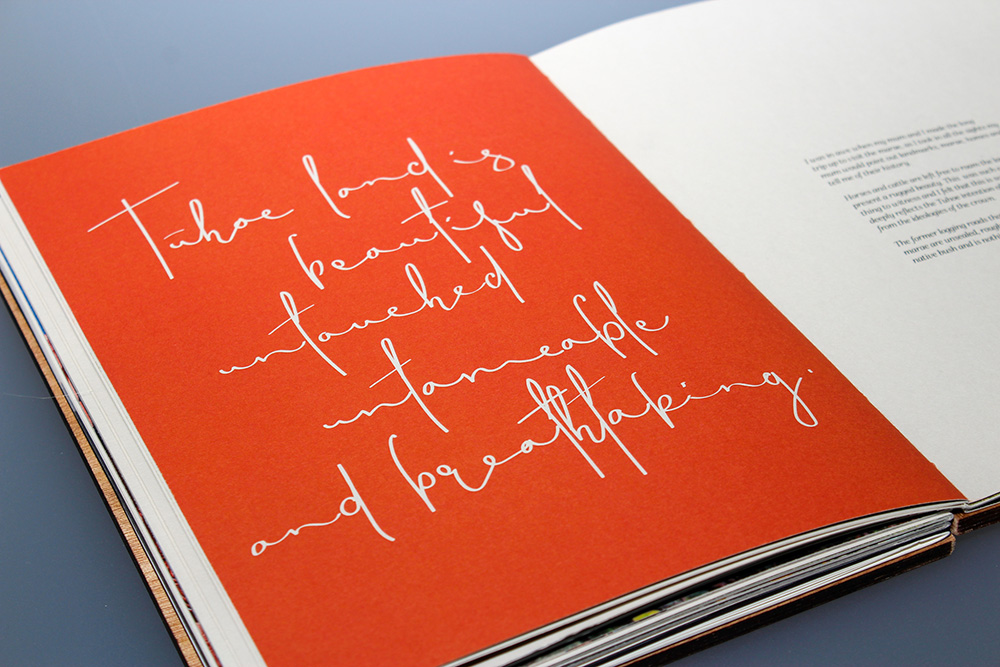 Tūhoe land is
beautiful
untouched
untameable
and breathtaking.
I was in awe when my mum and I made the long
trip up to visit the marae, as I took in all the sights my
mum would point out landmarks, marae, homes and
tell me of their history.
Horses and cattle are left free to roam the
present a rugged beauty. This was such
thing to witness and I felt that this is
deeply reflects the Tuhoe intention
from the ideologies of the crown.
The former logging roads
marae are unsealed,
native bush and is